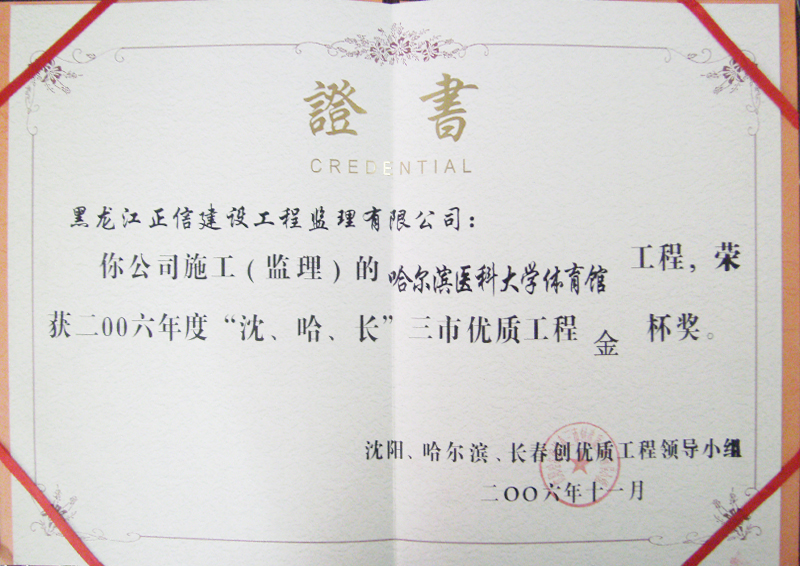 證書
CREDENTIAL
黑龙江正信建设工程监理有限公司：
你公司施工（监理）的哈尔滨医科大学体育馆工程，荣
获二00六年度“沈、哈、长”三市优质工程金杯奖。
沈阳、哈尔滨、长春创优质工程领导小组
二00六年十一月